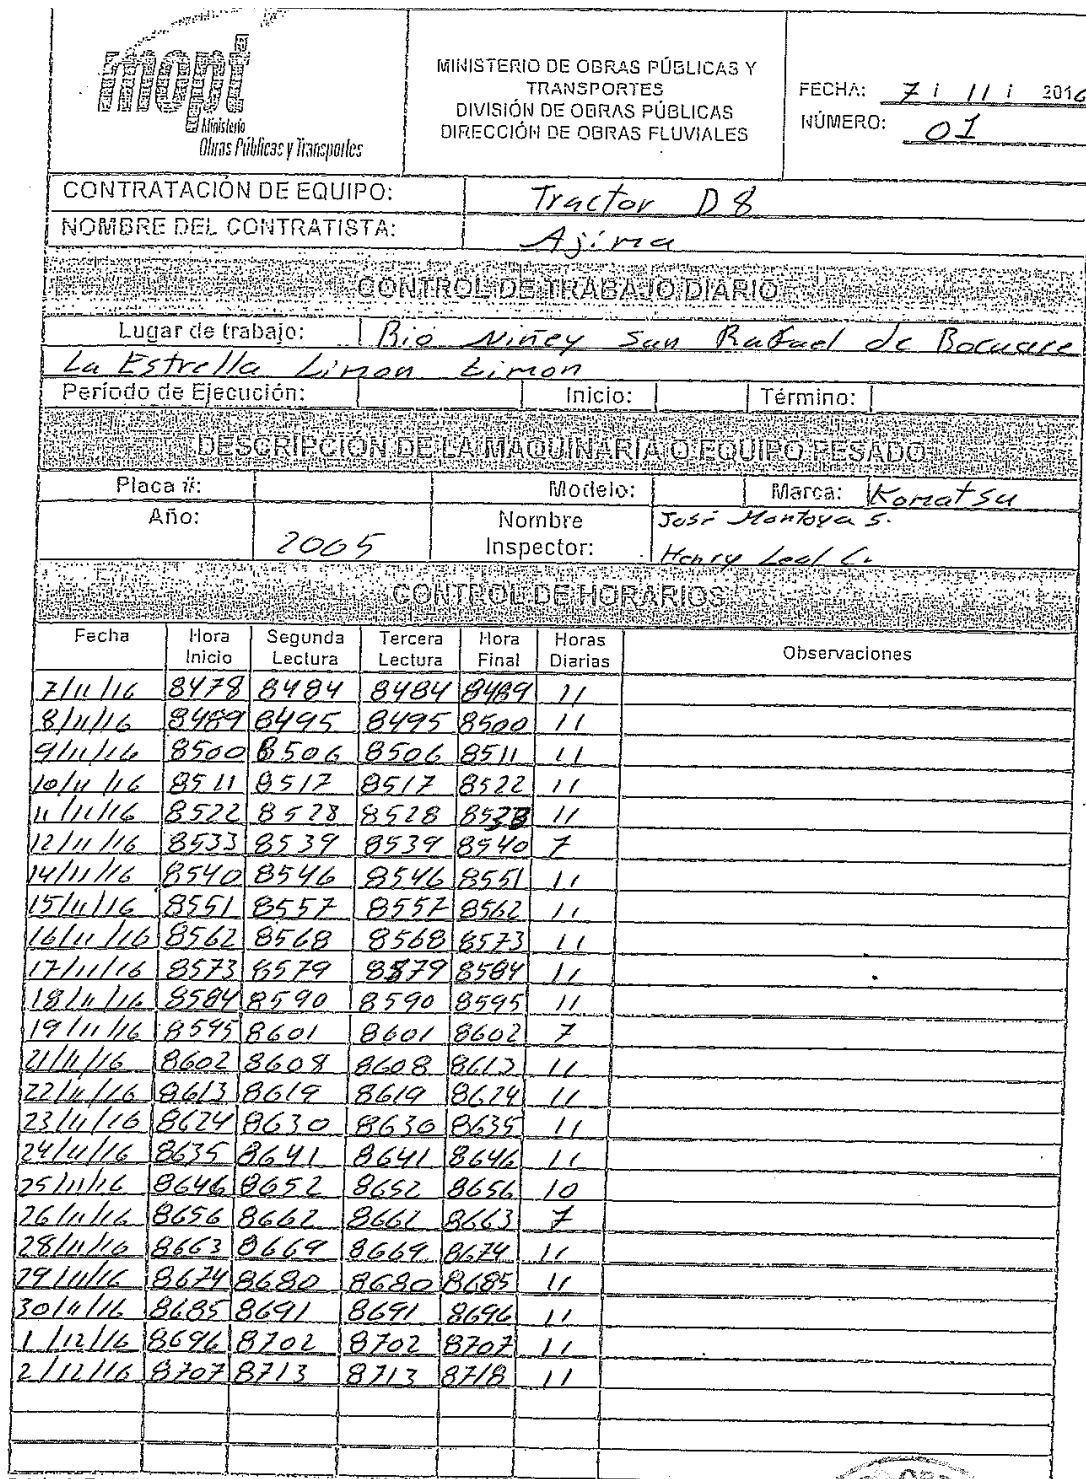 mopt
Ministerio
Obras Públicas y Transportes
MINISTERIO DE OBRAS PÚBLICAS Y
TRANSPORTES
DIVISIÓN DE OBRAS PÚBLICAS
DIRECCIÓN DE OBRAS FLUVIALES
FECHA: 7 / 11 / 2016
NÚMERO: 01
CONTRATACIÓN DE EQUIPO: Tractor D8
NOMBRE DEL CONTRATISTA: Ajima
CONTROL DE TRABAJO DIARIO
Lugar de trabajo: Rio Niñey San Rafael de Bocuare
La Estrella Limon Limon
Período de Ejecución: Inicio: Término:
DESCRIPCIÓN DE LA MAQUINARIA O EQUIPO PESADO
Placa #: Modelo: Marca: Komatsu
Año: 2005 Nombre Inspector: José Montoya S.
Henry Leal C.
CONTROL DE HORARIOS
Fecha Hora Inicio Segunda Lectura Tercera Lectura Hora Final Horas Diarias Observaciones
7/11/16 8478 8484 8484 8489 11
8/11/16 8489 8495 8495 8500 11
9/11/16 8500 8506 8506 8511 11
10/11/16 8511 8517 8517 8522 11
11/11/16 8522 8528 8528 8533 11
12/11/16 8533 8539 8539 8540 7
14/11/16 8540 8546 8546 8551 11
15/11/16 8551 8557 8557 8562 11
16/11/16 8562 8568 8568 8573 11
17/11/16 8573 8579 8579 8584 11
18/11/16 8584 8590 8590 8595 11
19/11/16 8595 8601 8601 8602 7
21/11/16 8602 8608 8608 8613 11
22/11/16 8613 8619 8619 8624 11
23/11/16 8624 8630 8630 8635 11
24/11/16 8635 8641 8641 8646 11
25/11/16 8646 8652 8652 8656 10
26/11/16 8656 8662 8662 8663 7
28/11/16 8663 8669 8669 8674 11
29/11/16 8674 8680 8680 8685 11
30/11/16 8685 8691 8691 8696 11
1/12/16 8696 8702 8702 8707 11
2/12/16 8707 8713 8713 8718 11